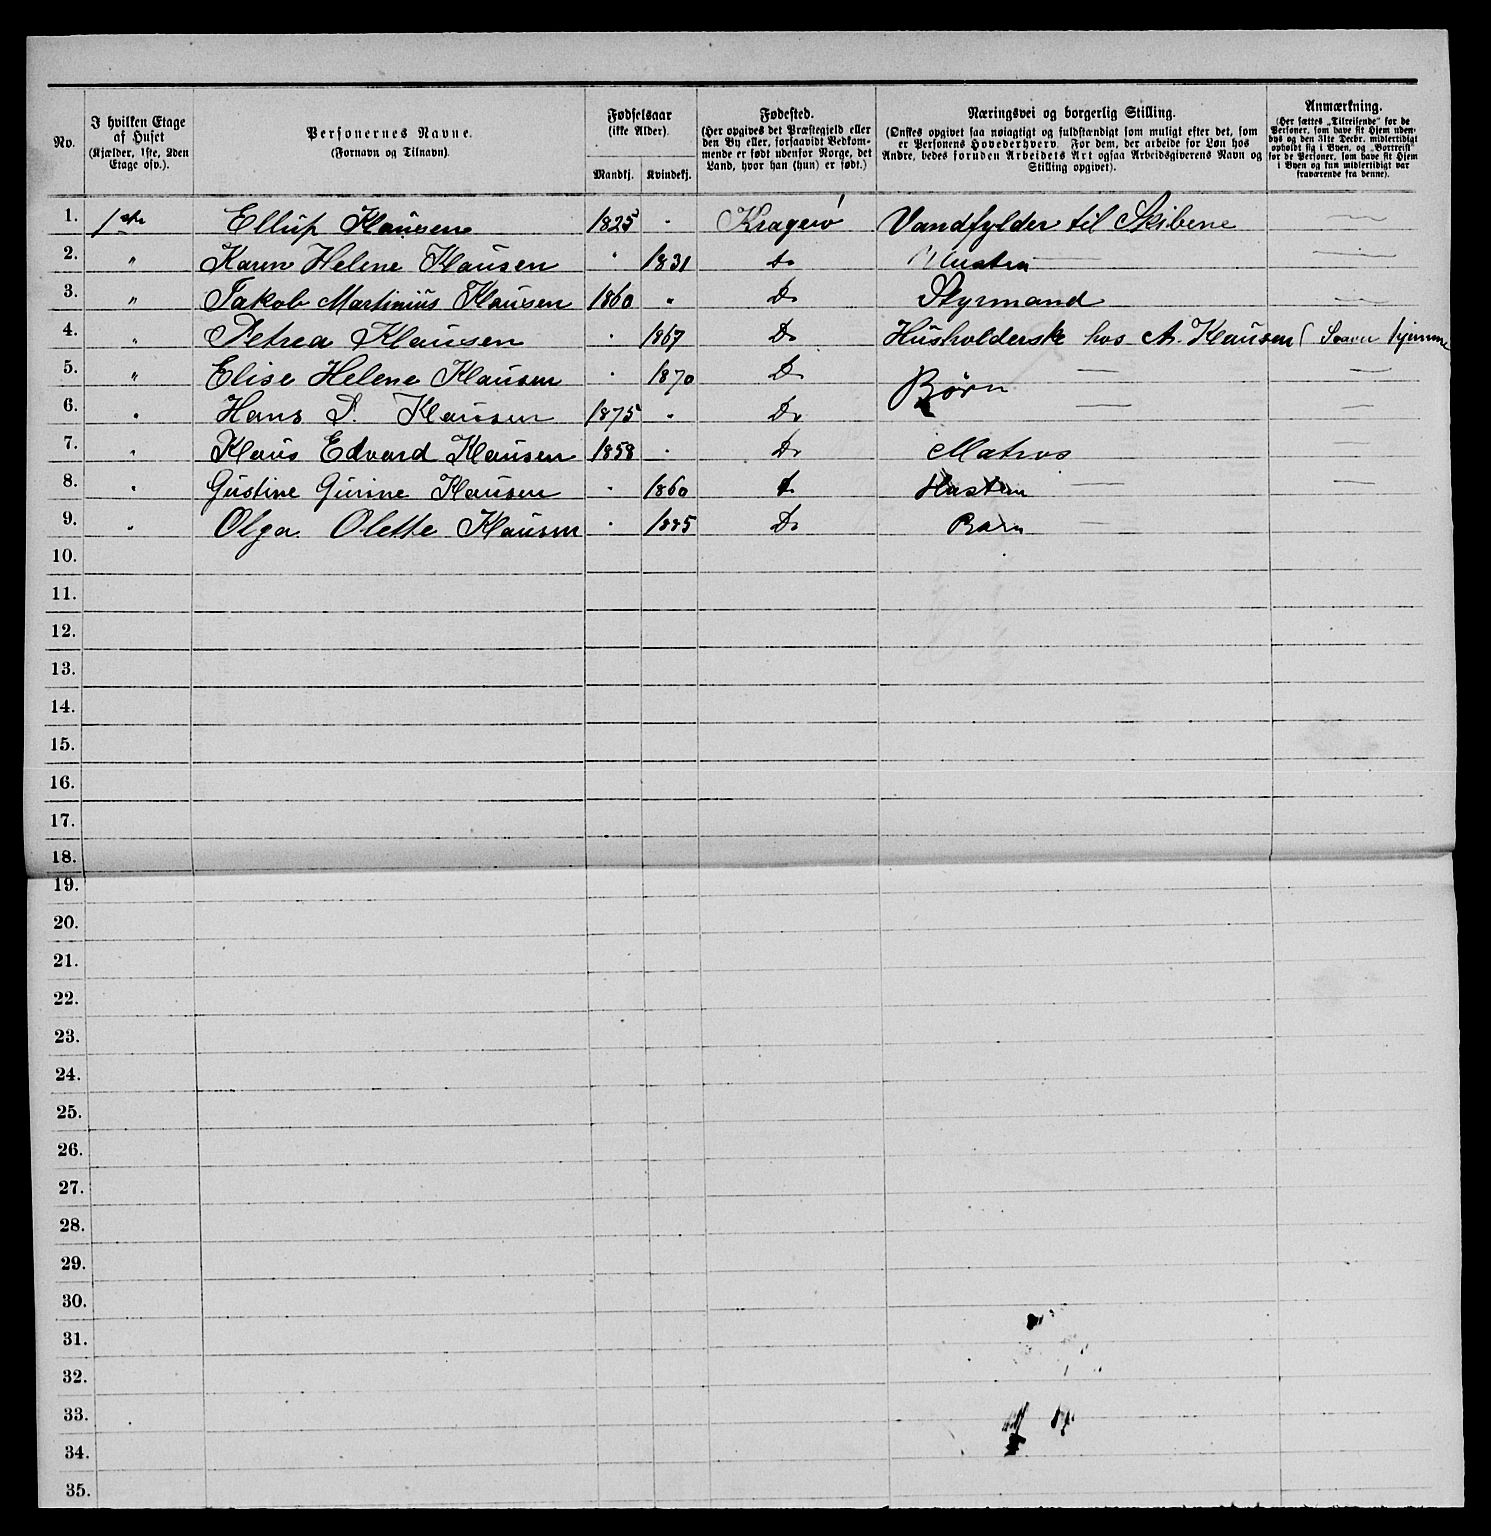 No. I hvilken Etage af Huset (Kjælder, 1ste, 2den Etage osv.). Personernes Navne. (Fornavn og Tilnavn). Fødselsaar (ikke Alder). Mandkj. Kvindekj. Fødested. (Her opgives det Præstegjeld eller den By eller, forsaavidt Vedkommende er født udenfor Norge, det Land, hvor han (hun) er født.) Næringsvei og borgerlig Stilling. (Ønskes opgivet saa nøiagtigt og fuldstændigt som muligt efter det, som er Personens Hovederhverv. For dem, der arbeide for Løn hos Andre, bedes foruden Arbeidets Art ogsaa Arbeidsgiverens Navn og Stilling opgivet). Anmærkning. (Her sættes „Tilreisende“ for de Personer, som have sit Hjem udenbys og den 31te Decbr. midlertidigt opholdt sig i Byen, og „Bortreist“ for de Personer, som have sit Hjem i Byen og kun midlertidigt var fraværende fra denne).
1. 1ste Ellup Klausen 1825 " Kragerø Vandfylder til Skibene —
2. " Karen Helene Klausen " 1831 do Hustru —
3. " Jakob Martinius Klausen 1860 " Do Styrmand —
4. " Petrea Klausen " 1867 Do Husholderske hos A. Klausen hjemme
5. " Elise Helene Klausen " 1870 Do Børn —
6. " Hans P. Klausen 1875 " Do —
7. " Klaus Edvard Klausen 1858 " Do Matros —
8. " Gustine Gurine Klausen " 1860 do Hustru —
9. " Olga Olette Klausen " 1885 Do Barn —
10.
11.
12.
13.
14.
15.
16.
17.
18.
19.
20.
21.
22.
23.
24.
25.
26.
27.
28.
29.
30.
31.
32.
33.
34.
35.